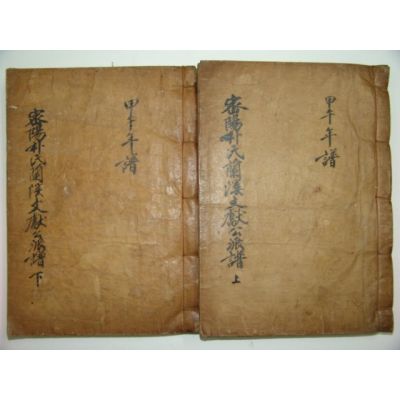 甲午年譜
密陽朴氏蘭溪文獻公派譜 上
甲午年譜
密陽朴氏蘭溪文獻公派譜 下